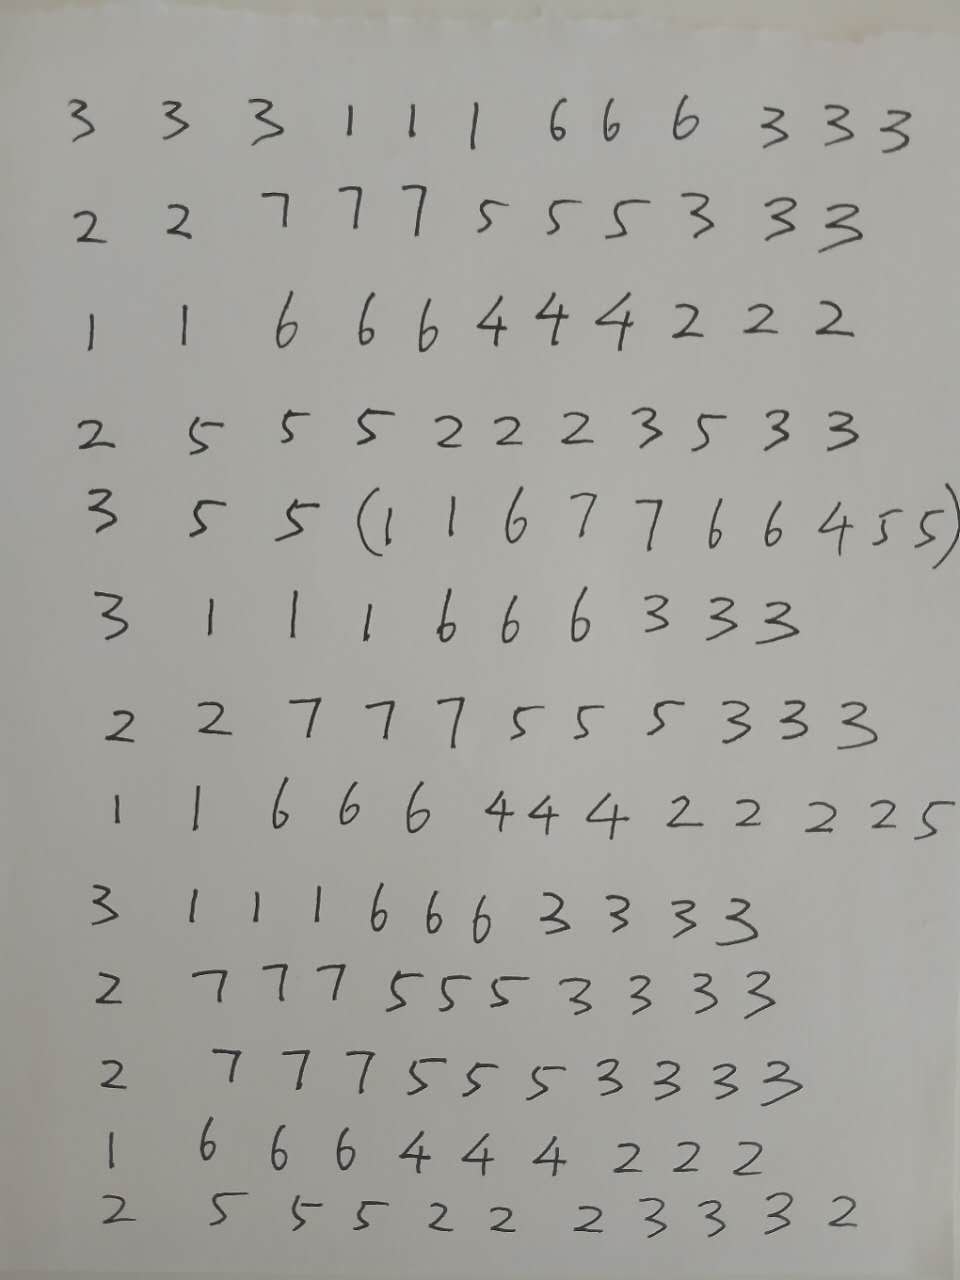 3 3 3 1 1 1 6 6 6 3 3 3
2 2 7 7 7 5 5 5 3 3 3
1 1 6 6 6 4 4 4 2 2 2
2 5 5 5 2 2 2 3 5 3 3
3 5 5 (1 1 6 7 7 6 6 4 5 5)
3 1 1 1 6 6 6 3 3 3
2 2 7 7 7 5 5 5 3 3 3
1 1 6 6 6 4 4 4 2 2 2 2 5
3 1 1 1 6 6 6 3 3 3 3
2 7 7 7 5 5 5 3 3 3 3
2 7 7 7 5 5 5 3 3 3 3
1 6 6 6 4 4 4 2 2 2
2 5 5 5 2 2 2 3 3 3 2